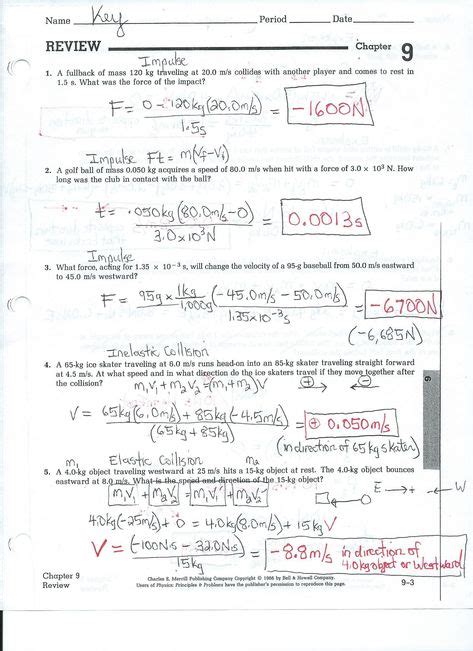 Name Key Period Date
REVIEW Chapter 9
Impulse
1. A fullback of mass 120 kg traveling at 20.0 m/s collides with another player and comes to rest in
1.5 s. What was the force of the impact?
F = 0 - 120kg(20.0m/s) / 1.5s = -1600N
Impulse Ft = m(Vf - Vi)
2. A golf ball of mass 0.050 kg acquires a speed of 80.0 m/s when hit with a force of 3.0 × 10³ N. How
long was the club in contact with the ball?
t = .050kg(80.0m/s - 0) / 3.0x10³N = 0.0013s
Impulse
3. What force, acting for 1.35 × 10⁻³ s, will change the velocity of a 95-g baseball from 50.0 m/s eastward
to 45.0 m/s westward?
F = 95g x 1kg/1,000g (-45.0m/s - 50.0m/s) / 1.35x10⁻³s = -6700N
(-6,685N)
Inelastic Collision
4. A 65-kg ice skater traveling at 6.0 m/s runs head-on into an 85-kg skater traveling straight forward
at 4.5 m/s. At what speed and in what direction do the ice skaters travel if they move together after
the collision? m₁V₁ + m₂V₂ = (m₁+m₂)V ⊕→ ←⊖
V = 65kg(6.0m/s) + 85kg(-4.5m/s) / (65kg + 85kg) = ⊕ 0.050m/s
(in direction of 65kg skater)
m₁ Elastic Collision m₂
5. A 4.0-kg object traveling westward at 25 m/s hits a 15-kg object at rest. The 4.0-kg object bounces
eastward at 8.0 m/s. What is the speed and direction of the 15-kg object?
m₁V₁ + m₂V₂ = m₁V₁' + m₂V₂' E →+ ←- W
4.0kg(-25m/s) + 0 = 4.0kg(8.0m/s) + 15kg V
V = (-100N·s - 32.0N·s) / 15kg = -8.8m/s in direction of
4.0kg object or Westward
9
Chapter 9
Review
Charles E. Merrill Publishing Company Copyright © 1986 by Bell & Howell Company.
Users of Physics: Principles & Problems have the publisher's permission to reproduce this page.
9-3